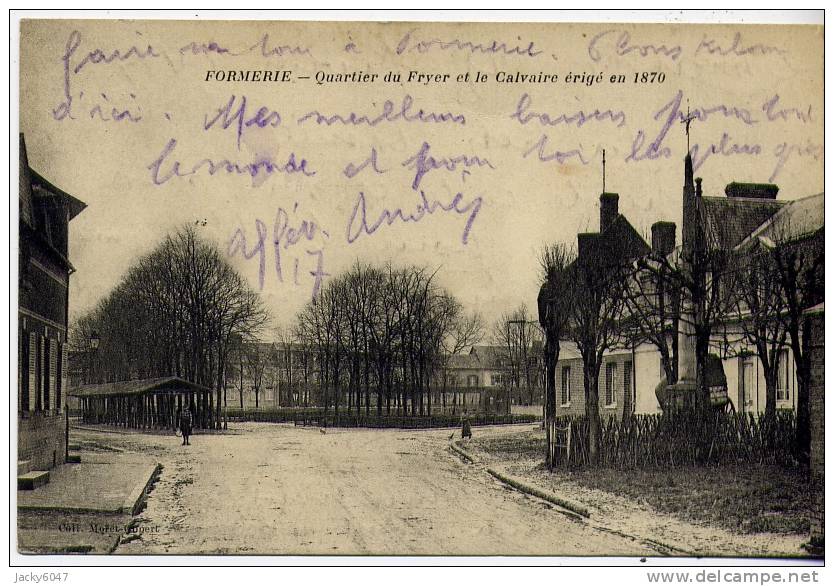 faire un tour à Formerie.
FORMERIE — Quartier du Fryer et le Calvaire érigé en 1870
d'ici. Mes meilleurs baisers pour tout
le monde et pour toi les plus gros
Afféc. André
17
Coll. Moret-Gupert
Jacky6047
www.delcampe.net